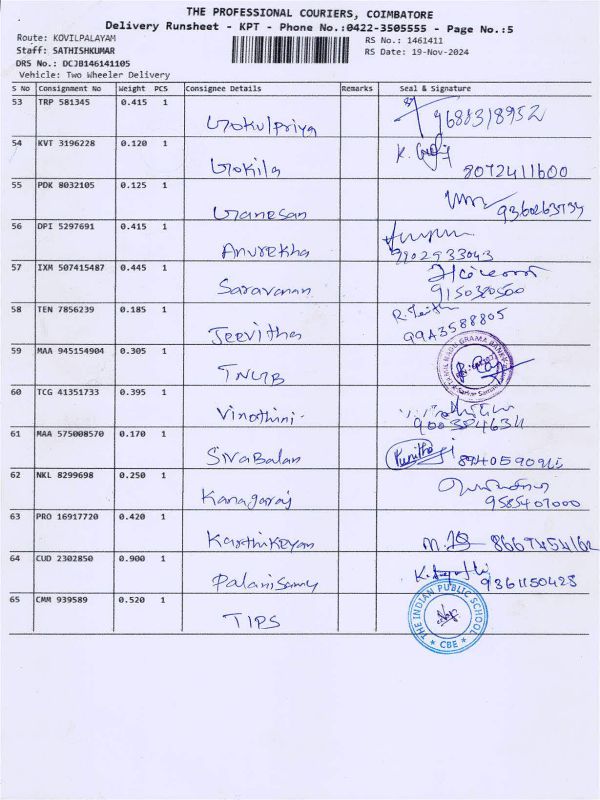 THE PROFESSIONAL COURIERS, COIMBATORE
Delivery Runsheet - KPT - Phone No.:0422-3505555 - Page No.:5
Route: KOVILPALAYAM
RS No.: 1461411
Staff: SATHISHKUMAR
RS Date: 19-Nov-2024
DRS No.: DCJB146141105
Vehicle: Two Wheeler Delivery
S No Consignment No Weight PCS Consignee Details Remarks Seal & Signature
53 TRP 581345 0.415 1 Gokulpriya 9688318952
54 KVT 3196228 0.120 1 Gokila 8072411600
55 PDK 8032105 0.125 1 Ganesan
56 DPI 5297691 0.415 1 Anurekha
57 IXM 507415487 0.445 1 Saravanan 9150320500
58 TEN 7856239 0.185 1 Jeevitha 9943588805
59 MAA 945154904 0.305 1 TNGB
60 TCG 41351733 0.395 1 Vinothini
61 MAA 575008570 0.170 1 SivaBalan Punitha
62 NKL 8299698 0.250 1 Kanagaraj 9585407000
63 PRO 16917720 0.420 1 Karthikeyan 8667454162
64 CUD 2302850 0.900 1 Palanisamy 9361150428
65 CMM 939589 0.520 1 TIPS THE INDIAN PUBLIC SCHOOL * CBE *